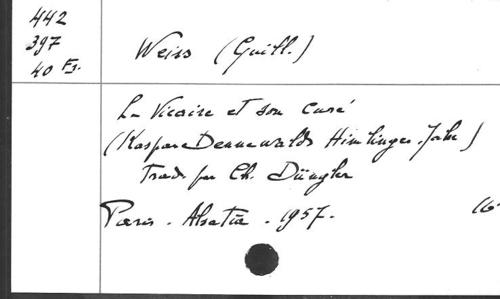 442
397
40 F3.
Weiss (Guill.)
Le Vicaire et son curé
(Kaspar Dennewalds Himlinger Jahr)
Trad. par Ch. Düngler
Paris. Alsatia. 1957.
16